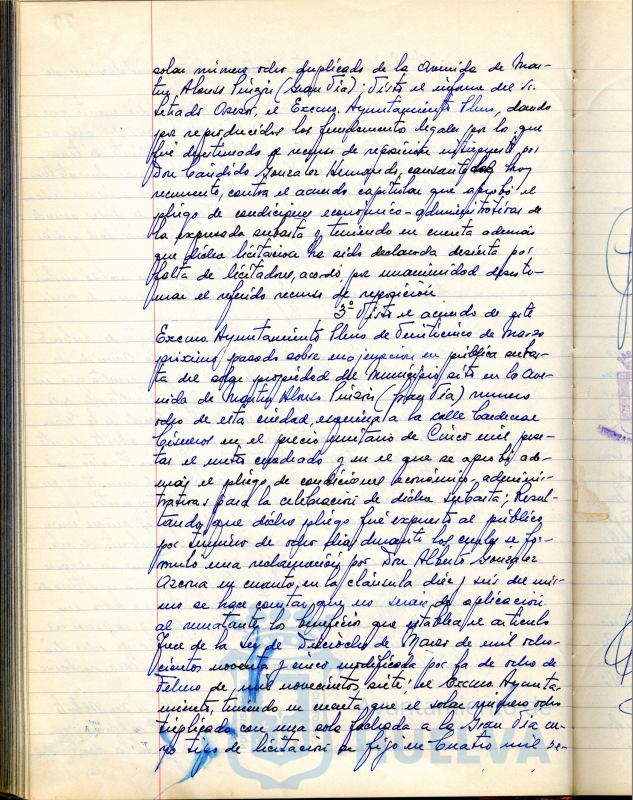 solar número ocho duplicado de la Avenida de Mar-
tín Alonso Pinzón (Gran Vía); Visto el informe del Sr.
Letrado Asesor, el Excmo. Ayuntamiento Pleno, dando
por reproducidos los fundamentos legales por lo que
fué desestimado el recurso de reposición interpuesto por
Don Cándido González Hernando, causante hoy
recurrente, contra el acuerdo capitular que aprobó el
pliego de condiciones económico-administrativas de
la expresada subasta y teniendo en cuenta además
que dicha licitación ha sido declarada desierta por
falta de licitadores, acordó por unanimidad desesti-
mar el referido recurso de reposición.
3º Visto el acuerdo de este
Excmo. Ayuntamiento Pleno de veinticinco de Marzo
próximo pasado sobre enajenación en pública subas-
ta del solar propiedad del Municipio sito en la Ave-
nida de Martín Alonso Pinzón (Gran Vía) número
ocho de esta ciudad, esquina a la calle Cardenal
Cisneros en el precio unitario de Cinco mil pese-
tas el metro cuadrado y en el que se aprobó ade-
más el pliego de condiciones económico-adminis-
trativas para la celebración de dicha subasta; Resul-
tando que dicho pliego fué expuesto al público
por término de ocho días durante los cuales se for-
muló una reclamación por Don Alberto González
en cuanto, en la cláusula diez y seis del mis-
mo se hace constar que no serán de aplicación
al rematante los beneficios que establece el artículo
trece de la Ley de Dieciocho de Marzo de mil ocho-
cientos noventa y cinco modificada por la de ocho de
Febrero de mil novecientos siete: el Excmo. Ayunta-
miento, teniendo en cuenta, que el solar número ocho
duplicado con una sola fachada a la Gran Vía cu-
yo tipo de licitación se fijó en Cuatro mil se-
HUELVA